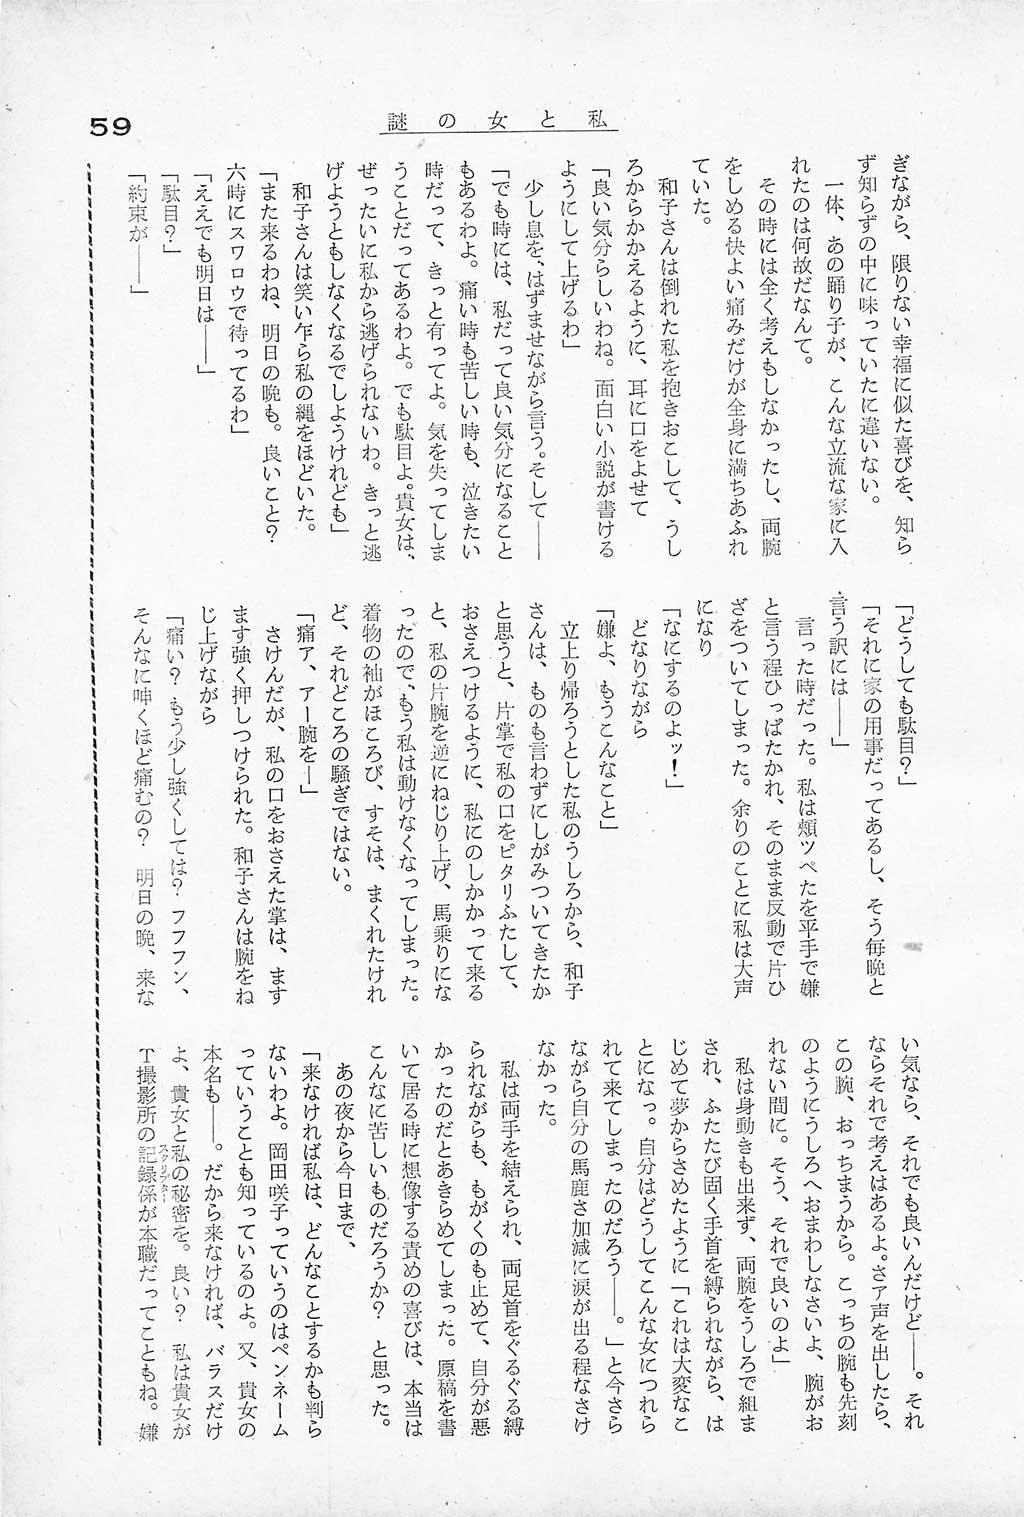 59
謎の女と私
ぎながら、限りない幸福に似た喜びを、知ら
ず知らずの中に味っていたに違いない。
一体、あの踊り子が、こんな立流な家に入
れたのは何故だなんて。
その時には全く考えもしなかったし、両腕
をしめる快よい痛みだけが全身に満ちあふれ
ていた。
和子さんは倒れた私を抱きおこして、うし
ろからかかえるように、耳に口をよせて
「良い気分らしいわね。面白い小説が書ける
ようにして上げるわ」
少し息を、はずませながら言う。そして――
「でも時には、私だって良い気分になること
もあるわよ。痛い時も苦しい時も、泣きたい
時だって、きっと有ってよ。気を失ってしま
うことだってあるわよ。でも駄目よ。貴女は、
ぜったいに私から逃げられないわ。きっと逃
げようともしなくなるでしようけれども」
和子さんは笑い乍ら私の縄をほどいた。
「また来るわね、明日の晩も。良いこと?
六時にスワロウで待ってるわ」
「ええでも明日は――」
「駄目?」
「約束が――」
「どうしても駄目?」
「それに家の用事だってあるし、そう毎晩と
言う訳には――」
言った時だった。私は頬ツペたを平手で嫌
と言う程ひっぱたかれ、そのまま反動で片ひ
ざをついてしまった。余りのことに私は大声
になり
「なにするのよッ!」
どなりながら
「嫌よ、もうこんなこと」
立上り帰ろうとした私のうしろから、和子
さんは、ものも言わずにしがみついてきたか
と思うと、片掌で私の口をピタリふたして、
おさえつけるように、私にのしかかって来る
と、私の片腕を逆にねじり上げ、馬乗りにな
ったので、もう私は動けなくなってしまった。
着物の袖がほころび、すそは、まくれたけれ
ど、それどころの騒ぎではない。
「痛ア、アー腕を―」
さけんだが、私の口をおさえた掌は、ます
ます強く押しつけられた。和子さんは腕をね
じ上げながら
「痛い? もう少し強くしては? フフフン、
そんなに呻くほど痛むの? 明日の晩、来な
い気なら、それでも良いんだけど――。それ
ならそれで考えはあるよ。さア声を出したら、
この腕、おっちまうから。こっちの腕も先刻
のようにうしろへおまわしなさいよ、腕がお
れない間に。そう、それで良いのよ」
私は身動きも出来ず、両腕をうしろで組ま
され、ふたたび固く手首を縛られながら、は
じめて夢からさめたように「これは大変なこ
とになっ。自分はどうしてこんな女につれら
れて来てしまったのだろう――。」と今さら
ながら自分の馬鹿さ加減に涙が出る程なさけ
なかった。
私は両手を結えられ、両足首をぐるぐる縛
られながらも、もがくのも止めて、自分が悪
かったのだとあきらめてしまった。原稿を書
いて居る時に想像する責めの喜びは、本当は
こんなに苦しいものだろうか? と思った。
あの夜から今日まで、
「来なければ私は、どんなことするかも判ら
ないわよ。岡田咲子っていうのはペンネーム
っていうことも知っているのよ。又、貴女の
本名も――。だから来なければ、バラスだけ
よ、貴女と私の秘密を。良い? 私は貴女が
T撮影所の記録係スクリプターが本職だってこともね。嫌